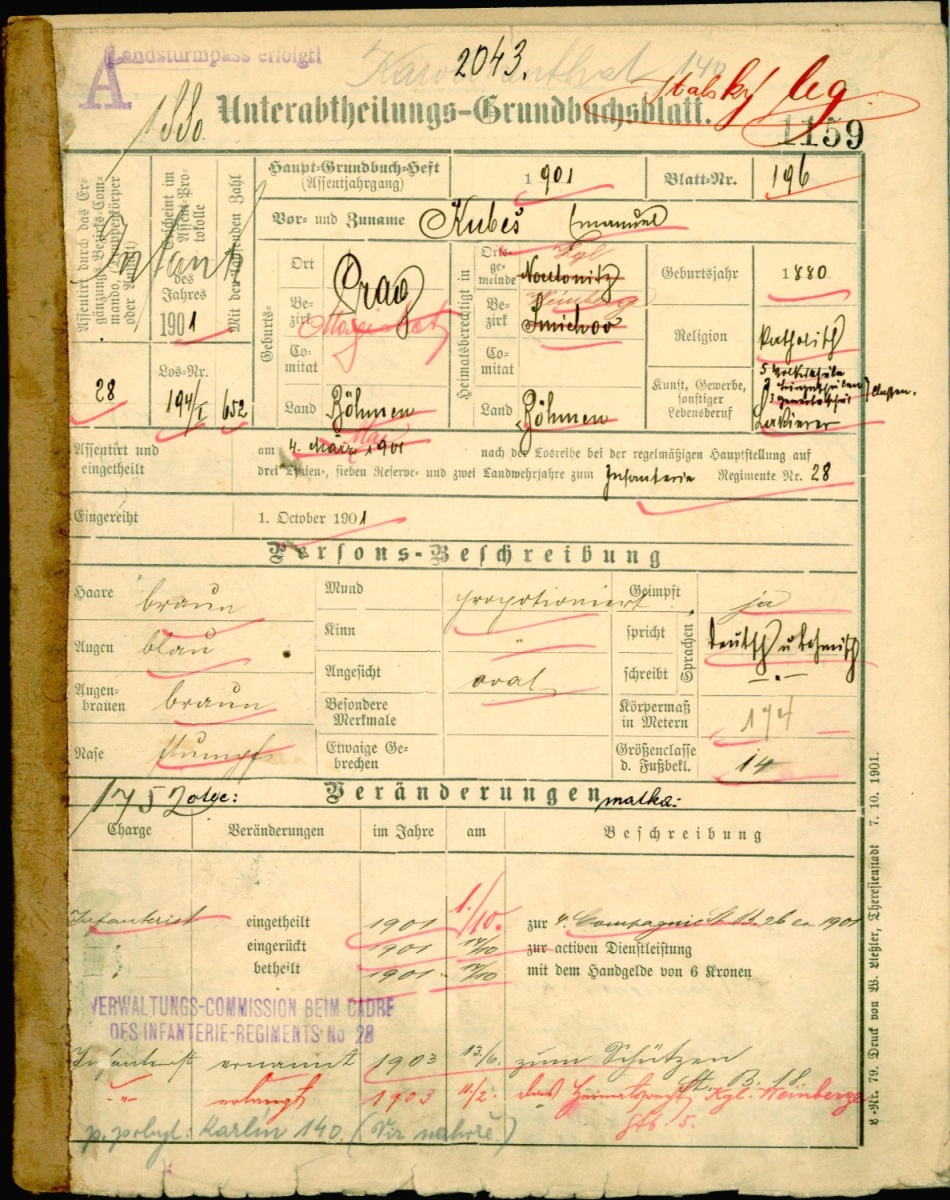 A Landsturmpass erfolgt!
Karolinenthal 140
2043.
1880.
Unterabtheilungs-Grundbuchsblatt.
Italský leg.
1159
Assentirt durch das Ergänzungs-Bezirks-Commando, (Truppenkörper oder Anstalt)
Erscheint im Assent-Protokolle des Jahres 1901
Mit der laufenden Zahl
Infant
28
Los-Nr. 194/I
652
Haupt-Grundbuch-Heft (Assentjahrgang) 1901
Blatt-Nr. 196
Vor- und Zuname Kubeš Emanuel
Geburts-
Ort Prag
Bezirk
Comitat
Land Böhmen
Heimatsberechtigt in
Ortsgemeinde Kgl
Bezirk Weinberge Smichov
Comitat
Land Böhmen
Geburtsjahr 1880
Religion katholisch
Kunst, Gewerbe, sonstiger Lebensberuf
5 Volksschule
3 Bürgerschulen
3 Gewerbeschul
Classen.
Lakierer
Assentirt und eingetheilt
am 4. März Mai 1901 nach der Losreihe bei der regelmäßigen Hauptstellung auf
drei Linien-, sieben Reserve- und zwei Landwehrjahre zum Infanterie Regimente Nr. 28
Eingereiht 1. October 1901
Persons-Beschreibung
Haare braun
Augen blau
Augenbrauen braun
Nase stumpf
Mund proportioniert
Kinn "
Angesicht oval
Besondere Merkmale
Etwaige Gebrechen
Geimpft ja
Sprachen
spricht deutsch u. böhmisch
schreibt - " -
Körpermaß in Metern 174
Größenclasse d. Fußbekl. 14
1752
otec:
Veränderungen
matka:
Charge Veränderungen im Jahre am Beschreibung
Infanterist eingetheilt 1901 1./10. zur 4. Compagnie
" eingerückt 1901 zur activen Dienstleistung
" betheilt 1901 mit dem Handgelde von 6 Kronen
VERWALTUNGS-COMMISSION BEIM CADRE
DES INFANTERIE-REGIMENTS No 28
Infanterist ernannt 1903 13./6. zum Schützen
St. B. 18
-"- erlangt 1903 11./2. das Heimatsrecht Kgl. Weinberge
p. pobyt: Karlín 140 (Viz nahoře)
-Nr. 79. Druck von W. Ließler, Theresienstadt 7. 10. 1901.